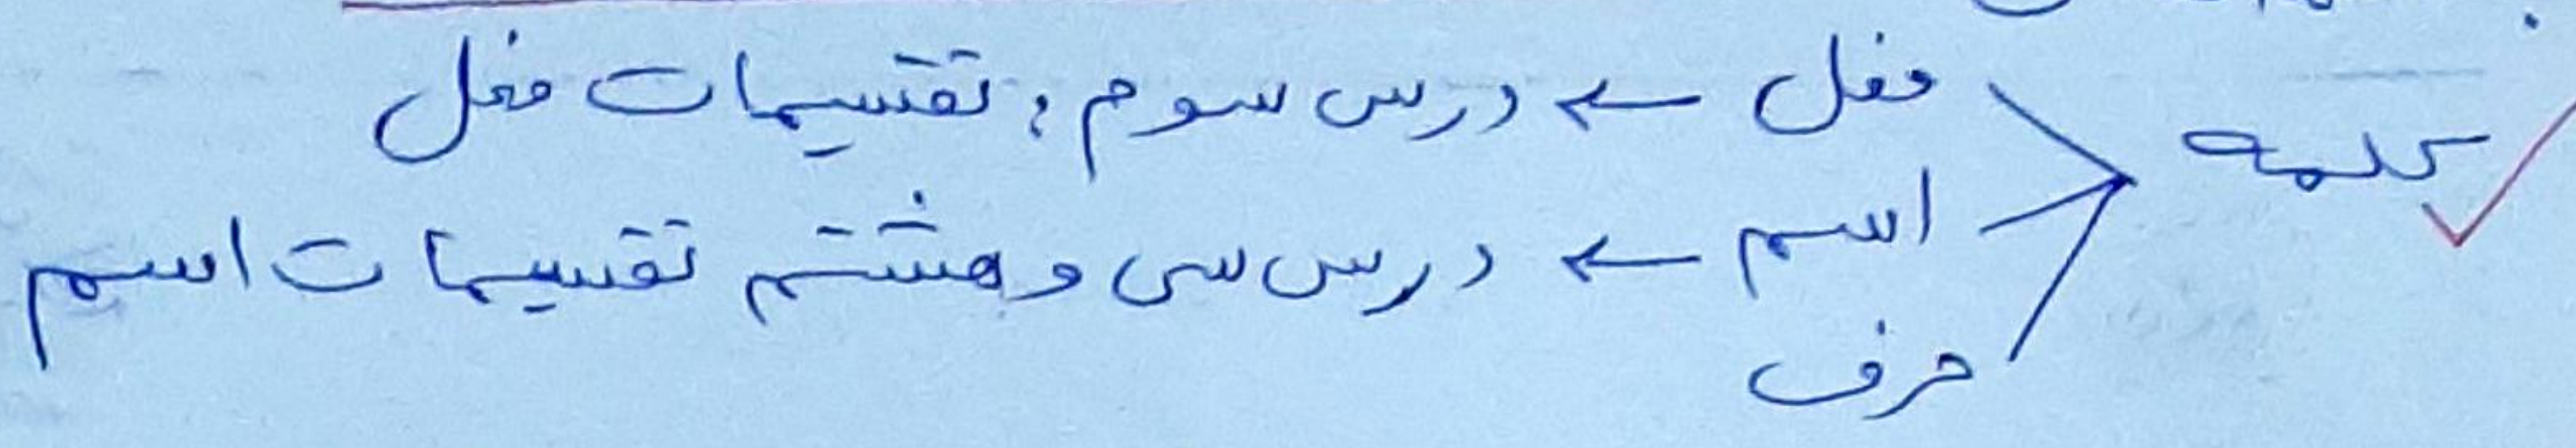 کلمه
فعل ← درس سوم : تقسیمات فعل
اسم ← درس سی و هشتم تقسیمات اسم
حرف